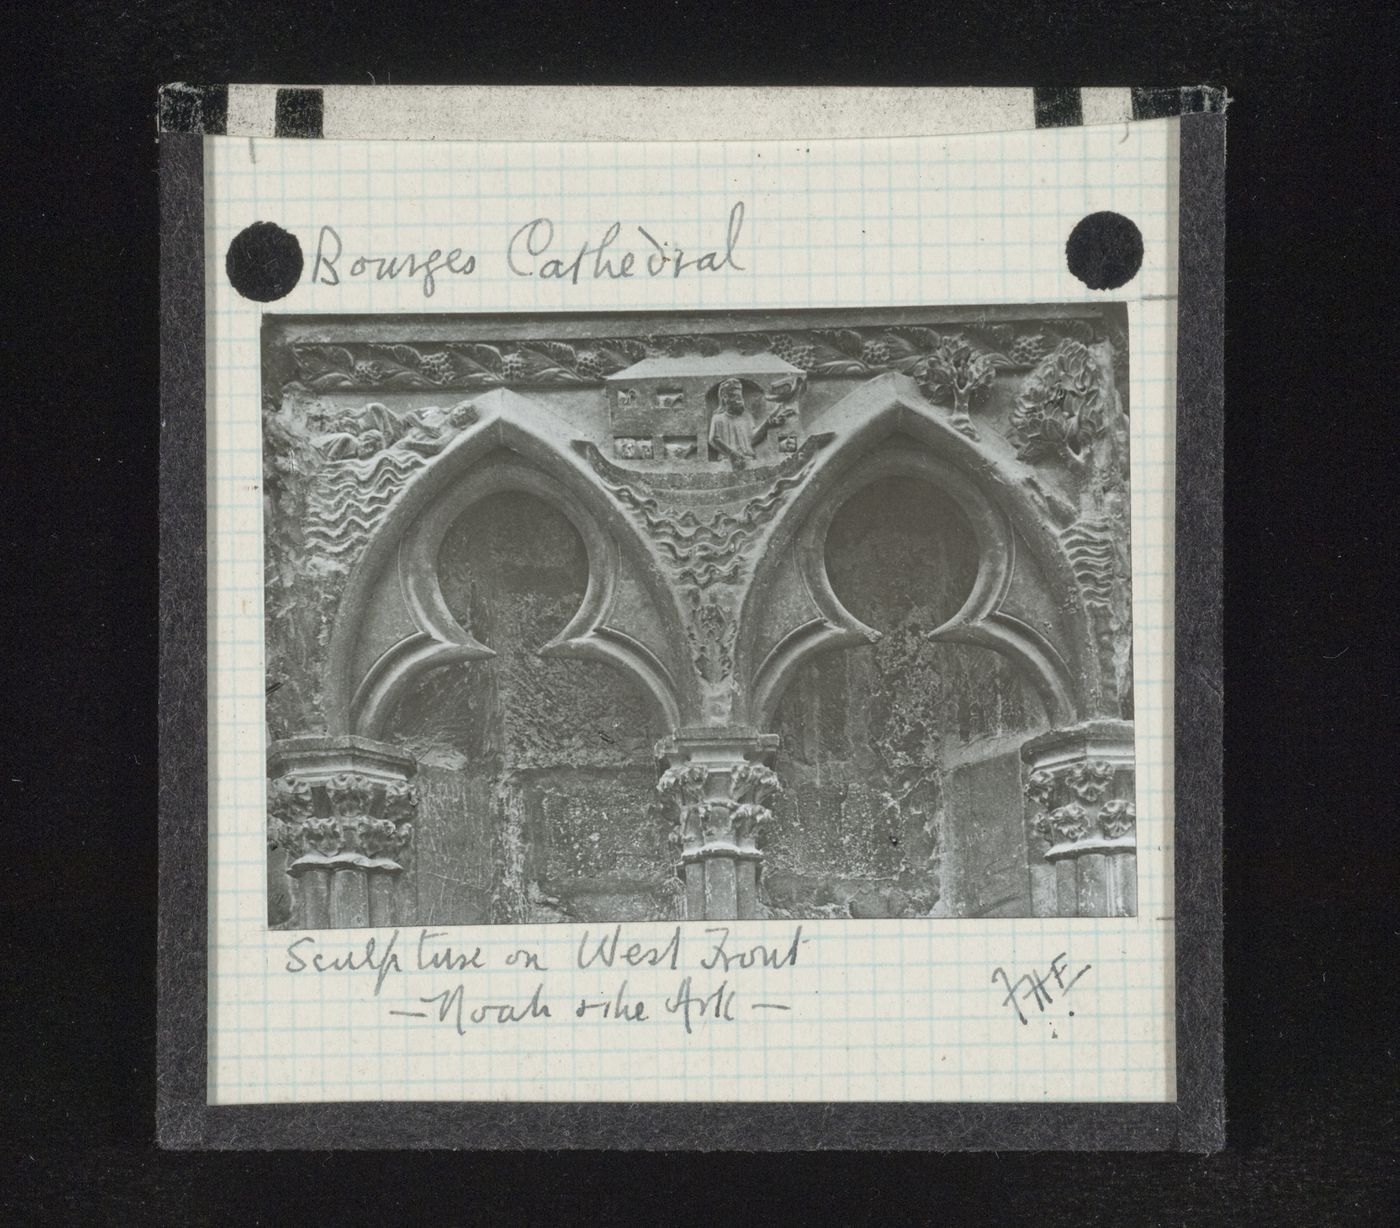 Bourges Cathedral
Sculpture on West Front
FHE
— Noah & the Ark —